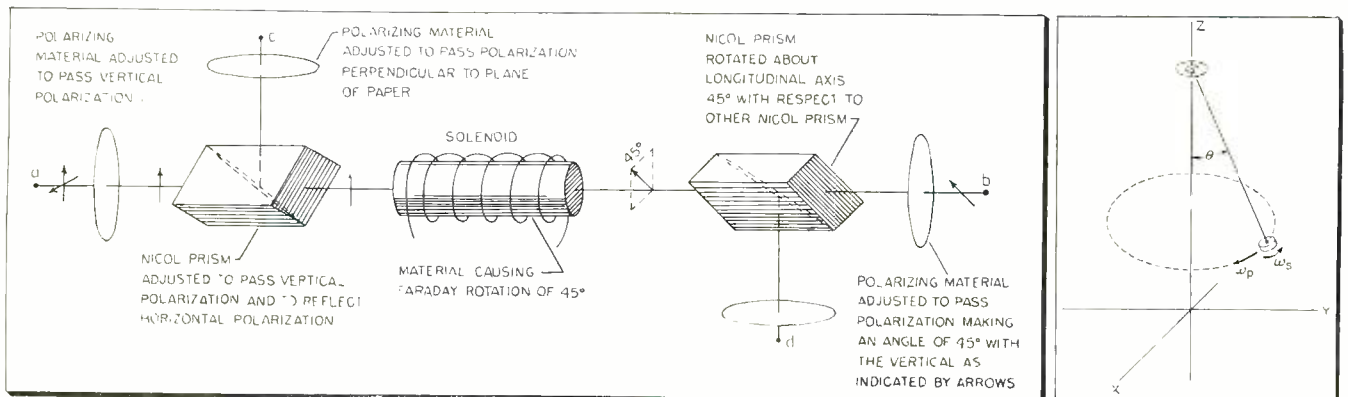 POLARIZING
MATERIAL ADJUSTED
TO PASS VERTICAL
POLARIZATION
c
POLARIZING MATERIAL
ADJUSTED TO PASS POLARIZATION
PERPENDICULAR TO PLANE
OF PAPER
NICOL PRISM
ROTATED ABOUT
LONGITUDINAL AXIS
45° WITH RESPECT TO
OTHER NICOL PRISM
SOLENOID
45°
a
b
NICOL PRISM
ADJUSTED TO PASS VERTICAL
POLARIZATION AND TO REFLECT
HORIZONTAL POLARIZATION
MATERIAL CAUSING
FARADAY ROTATION OF 45°
d
POLARIZING MATERIAL
ADJUSTED TO PASS
POLARIZATION MAKING
AN ANGLE OF 45° WITH
THE VERTICAL AS
INDICATED BY ARROWS
Z
θ
ωp
ωs
Y
X